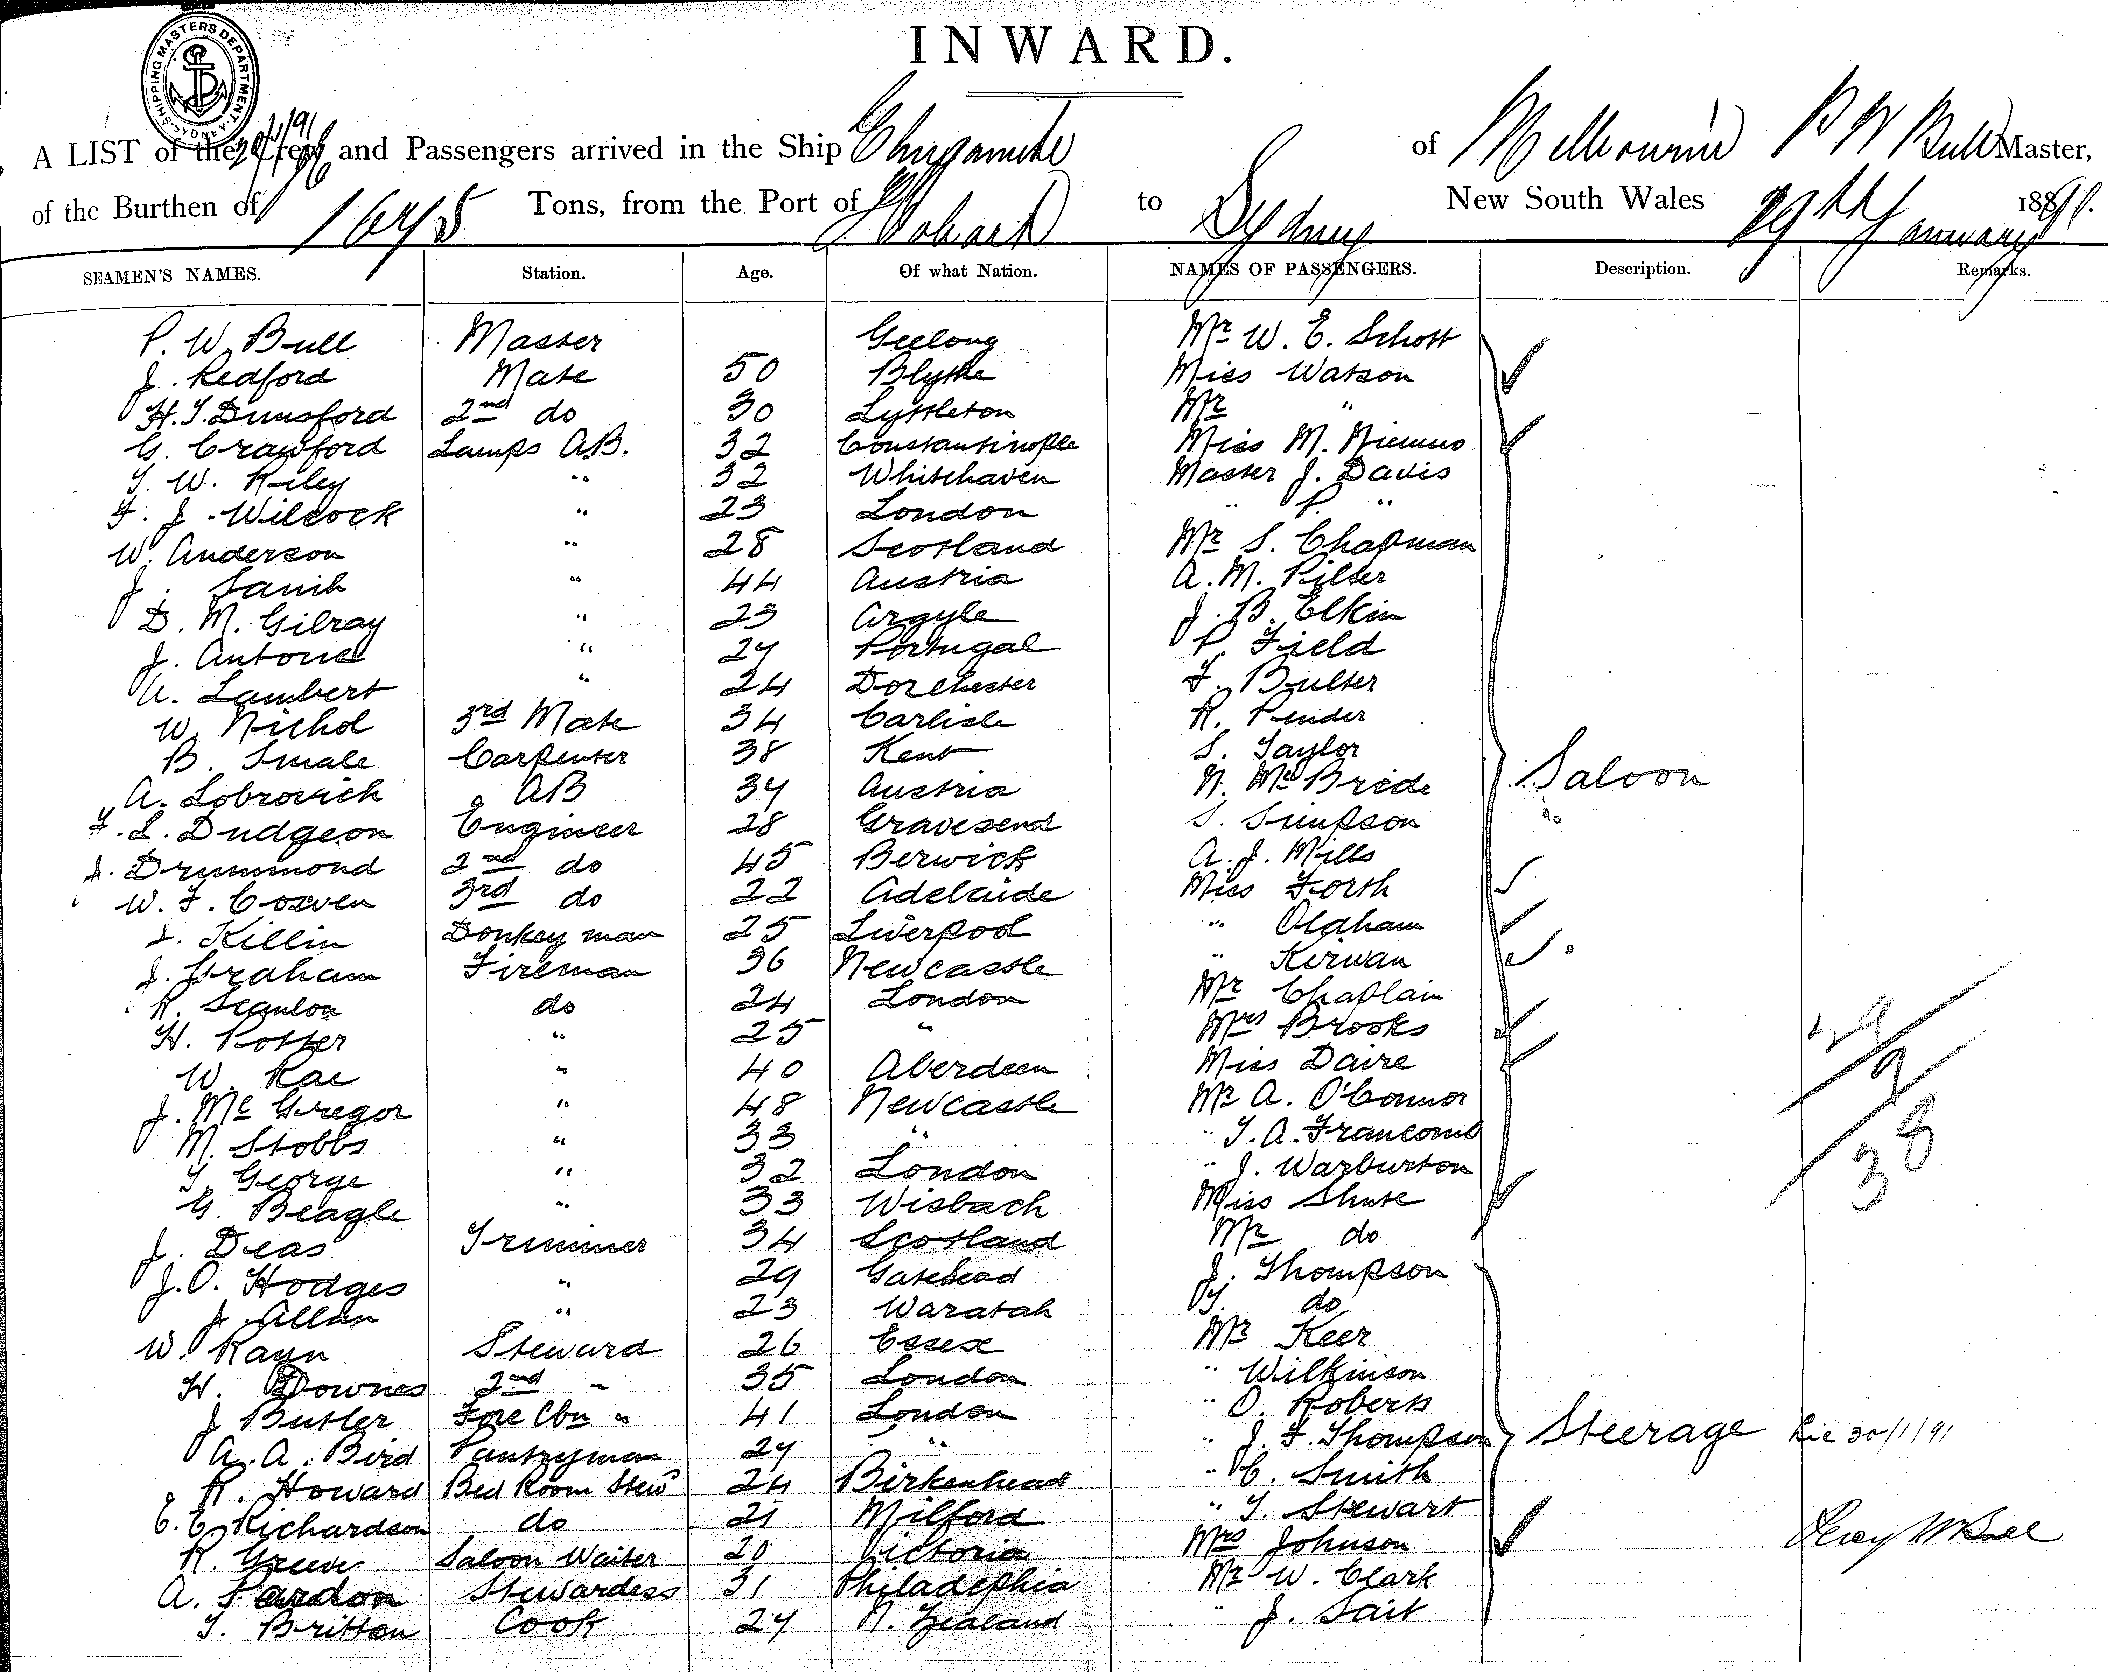 INWARD.
SHIPPING MASTERS DEPARTMENT
A LIST of the Crew and Passengers arrived in the Ship of Melbourne P W Bull Master,
of the Burthen of 1645 Tons, from the Port of Hobart to Sydney New South Wales 29th January 1891.
SEAMEN'S NAMES. Station. Age. Of what Nation. NAMES OF PASSENGERS. Description. Remarks.
P. W. Bull Master Geelong Mr W. E. Schott
J. Redford Mate 50 Blythe Miss Watson
H. T. Dunsford 2nd do 30 Lyttleton Mr "
G. Crawford Lamps AB. 32 Constantinople Miss M. Nimmo
T. W. Riley " 32 Whitehaven Master J. Davis
F. J. Wilcock " 23 London " P. "
W. Anderson " 28 Scotland Mr S. Chapman
J. " 44 Austria A. M. Pilter
D. M. Gilray " 23 Argyle J. B. Elkin
J. Antone " 27 Portugal P. Field
A. Lambert " 24 Dorchester F. Bulter
W. Nichol 3rd Mate 34 Carlisle R. Pender
B. Smale Carpenter 38 Kent S. Taylor
A. Lobrovich AB 37 Austria N. McBride Saloon
F. L. Dudgeon Engineer 28 Gravesend S. Simpson
J. Drummond 2nd do 45 Berwick A. J. Mills
W. F. Cowen 3rd do 22 Adelaide Miss Forth
J. Killin Donkey man 25 Liverpool " Oldham
J. Graham Fireman 36 Newcastle " Kirwan
R. Scanlon do 24 London Mr Chaplain
H. Potter " 25 " Mrs Brooks 29
W. Rae " 40 Aberdeen Miss Daire 9
J. McGregor " 48 Newcastle Mr A. O'Connor
M. Stobbs " 33 " " T. A. Francomb 38
T. George " 32 London " J. Warburton
G. Beagle " 33 Wisbach Miss Shute
J. Deas Trimmer 34 Scotland Mr do
J. O. Hodges " 29 Gateshead J. Thompson
J. Allan " 23 Waratah J. do
W. Rayn Steward 26 Essex Mr Keer
H. Downes 2nd " 35 London " Wilkinson
J Butler Fore Cbn " 41 London " O. Roberts
A. A. Bird Pantryman 27 " " J. F. Thompson Steerage Rec 30/1/91
R. Howard Bed Room Stewd 24 Birkenhead " C. Smith
C. E. Richardson do 21 Milford " T. Stewart
R. Green Saloon Waiter 20 Victoria Mrs Johnson Percy W Bull
A. Pardon Stewardess 31 Philadelphia Mr W. Clark
T. Britton Cook 27 N. Zealand " J. Tait